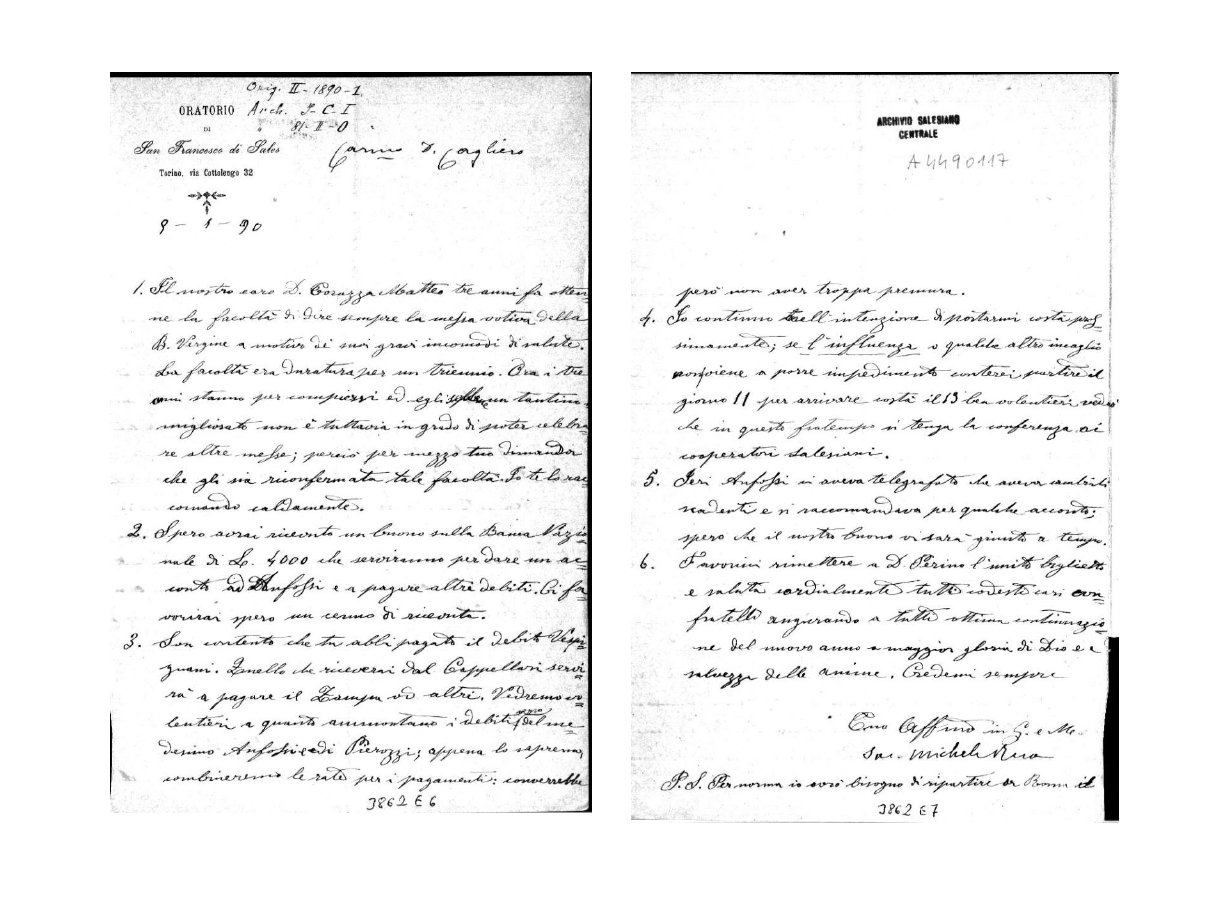 Orig. II-1890-1
ORATORIO
Arch. 3-C-I
DI
San Francesco di Sales
Carmo D. Cagliero
Torino, via Cottolengo 32
9-1-90
1. Il nostro caro D. Corazza Matteo tre anni fa otten=
ne la facoltà di dire sempre la messa votiva della
B. Vergine a motivo dei suoi gravi incomodi di salute.
La facoltà era duratura per un triennio. Ora i tre
anni stanno per compiersi ed egli sebbene un tantino
migliorato non è tuttavia in grado di poter celebra
re altre messe; perciò per mezzo tuo dimanda
che gli sia riconfermata tale facoltà. Io te lo rac=
comando caldamente.
2. Spero avrai ricevuto un buono sulla Banca Nazio=
nale di L. 4000 che serviranno per dare un ac=
conto ad Anfossi e a pagare altri debiti. Ci fa=
vorirai spero un cenno di ricevuta.
3. Son contento che tu abbi pagato il debito Vespi=
gnani. Quello che riceverai dal Cappellari servi=
rà a pagare il Zampa od altri. Vedremo vo=
lentieri a quanto ammontano i debiti verso del me=
desimo Anfossi e di Pierozzi; appena lo sapremo,
combineremo le rate per i pagamenti: converrebbe
3862 E 6
ARCHIVIO SALESIANO
CENTRALE
A4490117
però non aver troppa premura.
4. Io continuo nell'intenzione di portarmi costà pros=
simamente; se l'influenza o qualche altro incaglio
non viene a porre impedimento conterei partire il
giorno 11 per arrivare costà il 13 ben volentieri vedrò
che in questo frattempo si tenga la conferenza ai
cooperatori salesiani.
5. Ieri Anfossi ci aveva telegrafato che aveva cambiali
scadenti e si raccomandava per qualche acconto;
spero che il nostro buono vi sarà giunto a tempo.
6. Favorirai rimettere a D. Perino l'unito biglietto
e saluta cordialmente tutti codesti cari con=
fratelli augurando a tutti ottima continuazio=
ne del nuovo anno a maggior gloria di Dio e a
salvezza delle anime. Credemi sempre
Tuo Affmo in G. e M.
Sac. Michele Rua
P.S. Per norma io avrò bisogno di ripartire da Roma il
3862 E7